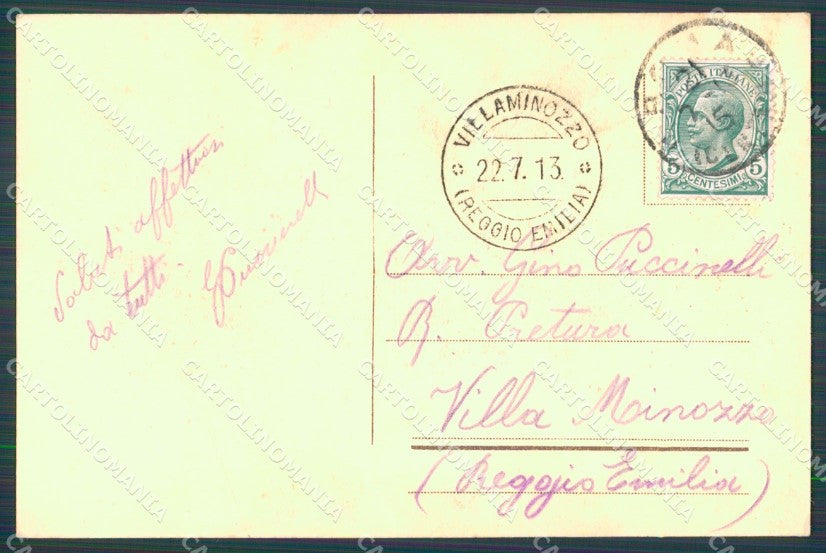 Saluti affettuosi
da tutti
VILLAMINOZZO
22.7.13.
(REGGIO EMILIA)
POSTE ITALIANE
5 CENTESIMI 5
Avv. Gino Puccinelli
R. Pretura
Villa Minozzo
(Reggio Emilia)
CARTOLINOMANIA